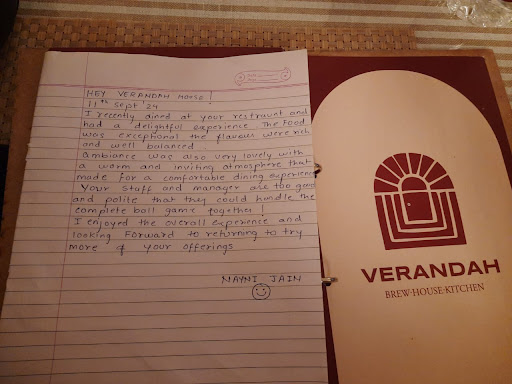 HEY VERANDAH HOUSE!
11th Sept '24
I recently dined at your restraunt and
had a delightful experience. The Food
was exceptional the flavours were rich
and well balanced.
Ambiance was also very lovely with
a warm and inviting atmosphere that
made for a comfortable dining experience
Your staff and manager are too good
and polite that they could handle the
complete ball game together!
I enjoyed the overall experience and
looking forward to returning to try
more of your offerings
NAYNI JAIN
VERANDAH
BREW·HOUSE·KITCHEN